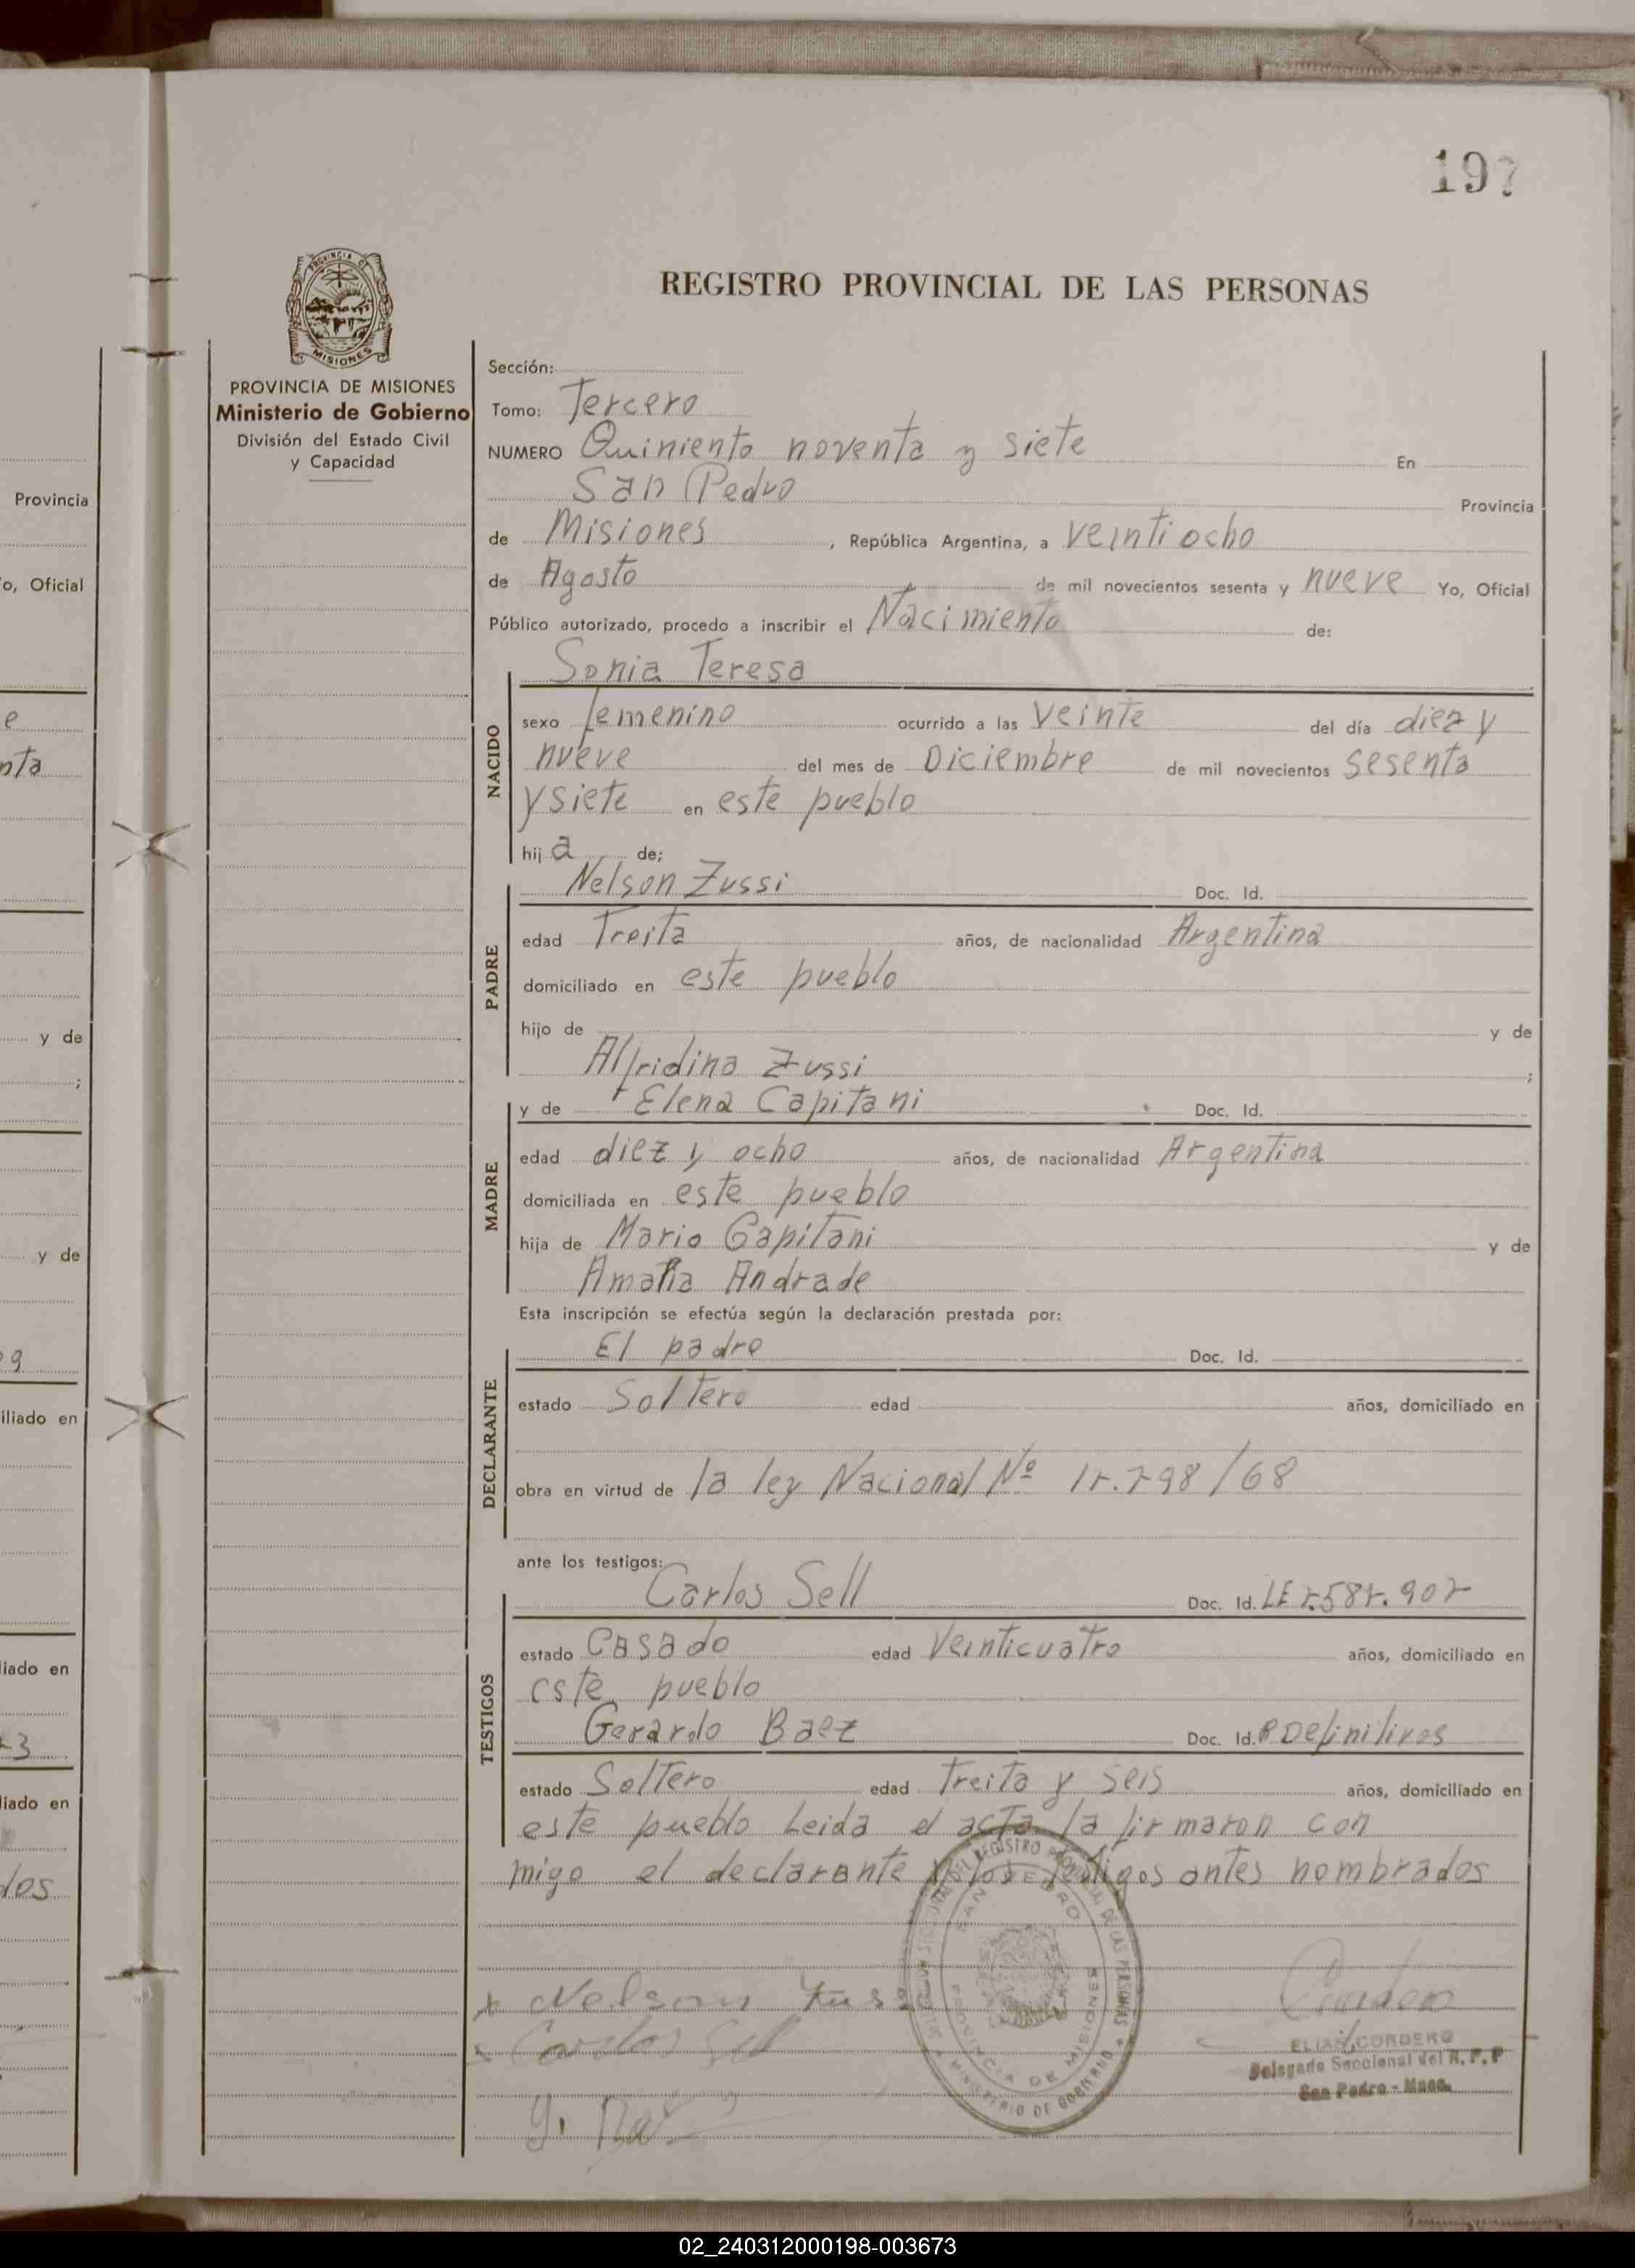 197
REGISTRO PROVINCIAL DE LAS PERSONAS
PROVINCIA DE
MISIONES
PROVINCIA DE MISIONES
Ministerio de Gobierno
División del Estado Civil
y Capacidad
Sección:
Tomo: Tercero
NUMERO Quiniento noventa y siete En
San Pedro Provincia
de Misiones , República Argentina, a veintiocho
de Agosto de mil novecientos sesenta y nueve Yo, Oficial
Público autorizado, procedo a inscribir el Nacimiento de:
Sonia Teresa
NACIDO
sexo femenino ocurrido a las veinte del día diez y
nueve del mes de Diciembre de mil novecientos sesenta
y siete en este pueblo
hija de;
Nelson Zussi Doc. Id.
PADRE
edad Treita años, de nacionalidad Argentina
domiciliado en este pueblo
hijo de y de
Alfridina Zussi ;
y de Elena Capitani Doc. Id.
MADRE
edad diez y ocho años, de nacionalidad Argentina
domiciliada en este pueblo
hija de Mario Capitani y de
Amalia Andrade
Esta inscripción se efectúa según la declaración prestada por:
El padre Doc. Id.
DECLARANTE
estado Soltero edad años, domiciliado en
obra en virtud de la ley Nacional Nº 798/68
ante los testigos:
Carlos Sell Doc. Id. LE
TESTIGOS
estado Casado edad Veinticuatro años, domiciliado en
este pueblo
Gerardo Baez Doc. Id. Definitivos
estado Soltero edad Treita y seis años, domiciliado en
este pueblo Leida el acta la firmaron con
migo el declarante y los testigos antes nombrados
SAN PEDRO
PROVINCIA DE MISIONES
DEL REGISTRO PROVINCIAL DE LAS PERSONAS
MINISTERIO DE GOBIERNO
Nelson Zussi
Carlos Sell
ELIAS CORDERO
Delegado Seccional del R. P. P
San Pedro - Mnes.
Provincia
o, Oficial
e
nta
y de
;
y de
9
iliado en
liado en
3
liado en
dos
02_240312000198-003673